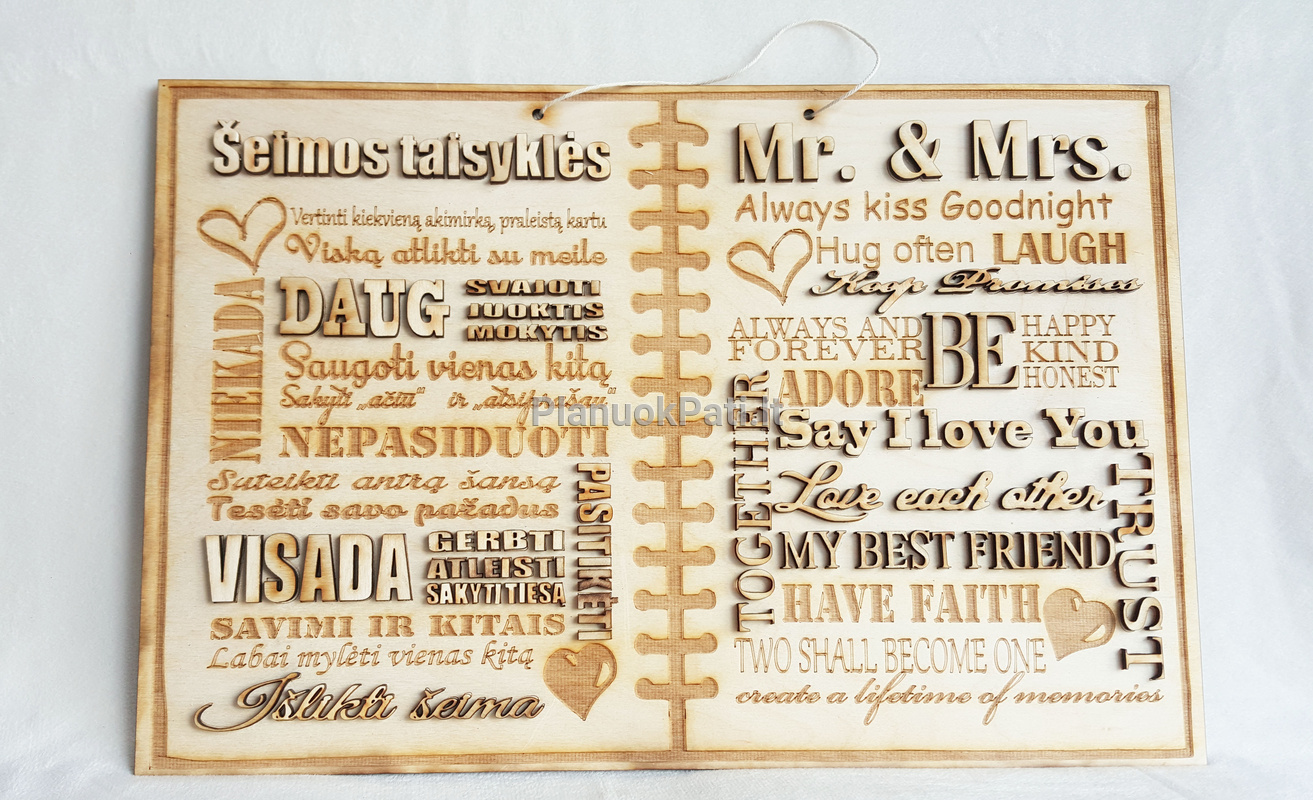 Šeimos taisyklės
Vertinti kiekvieną akimirką, praleistą kartu
Viską atlikti su meile
NIEKADA
DAUG
SVAJOTI
JUOKTIS
MOKYTIS
Saugoti vienas kitą
Sakyti „ačiū" ir „atsiprašau"
NEPASIDUOTI
Suteikti antrą šansą
Tesėti savo pažadus
PASITIKĖTI
VISADA
GERBTI
ATLEISTI
SAKYTI TIESĄ
SAVIMI IR KITAIS
Labai mylėti vienas kitą
Išlikti šeima
Mr. & Mrs.
Always kiss Goodnight
Hug often LAUGH
Keep Promises
ALWAYS AND
FOREVER
BE
HAPPY
KIND
HONEST
ADORE
TOGETHER
Say I love You
Love each other
TRUST
MY BEST FRIEND
HAVE FAITH
TWO SHALL BECOME ONE
create a lifetime of memories
PlanuokPati.lt